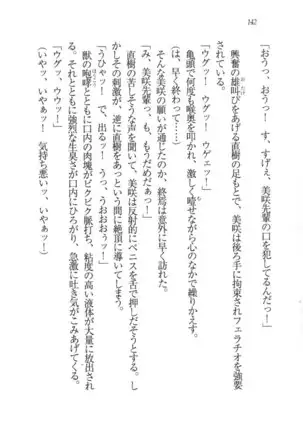 142
「おうっ、おうっ！　す、すげえ、美咲先輩の口を犯してるんだっ！」
興奮の雄叫びをあげる直樹の足もとで、美咲は後ろ手に拘束されフェラチオを強要
されていた。
「ウグッ！　ウグッ！　ウゲェッ！」
亀頭で何度も喉奥を叩かれ、激しく噎せながら心のなかで繰りかえす。
（は、早く終わって……）
そんな美咲の願いが通じたのか、終焉は意外に早く訪れた。
「み、美咲先輩っ、も、もうだめだぁっ！」
直樹のそんな声を聞いて、美咲は反射的にペニスを舌で押しだそうとする。し
かしその刺激が、逆に直樹をあっという間に絶頂に導いてしまう。
「うひゃっ！　で、出るッ！　うっ、うおおおぅッ！」
獣の咆哮とともに口内の肉塊がビクビク脈打ち、粘度の高い液体が大量に放出され
る。それとともに強烈な生臭さが口内にひろがり、急激に吐き気がこみあげてくる。
「ウグッ、ウウッ！」
（いやッ、いやぁッ！　気持ち悪いッ、いやぁッ！）